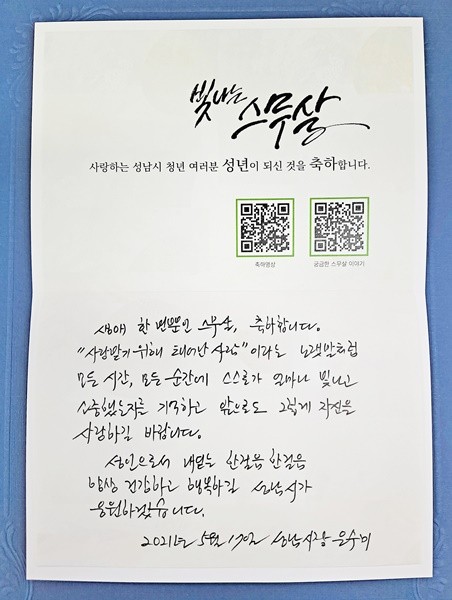 빛나는 스무살
사랑하는 성남시 청년 여러분 성년이 되신 것을 축하합니다.
축하영상 궁금한 스무살 이야기
생애 한 번뿐인 스무살, 축하합니다.
"사랑받기 위해 태어난 사람"이라는 노랫말처럼
모든 시간, 모든 순간에 스스로가 얼마나 빛나고
소중했는지를 기억하고 앞으로도 그렇게 자신을
사랑하길 바랍니다.
성인으로서 내딛는 한걸음 한걸음
항상 건강하고 행복하길 성남시가
응원하겠습니다.
2021년 5월 17일 성남시장 은수미